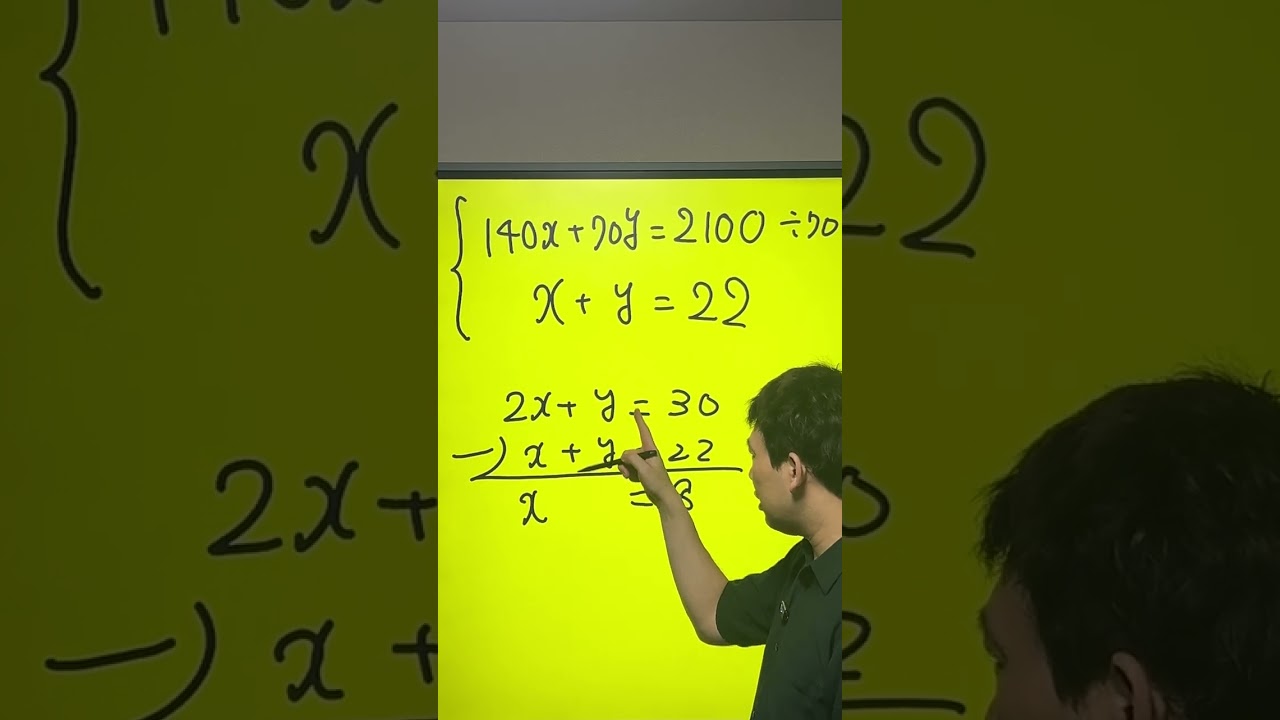 140x+70y=2100÷70
x+y=22
2x+y=30
-) x+y 22
x =8